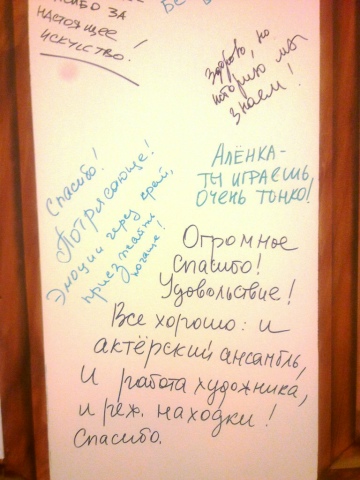 СПАСИБО ЗА
НАСТОЯЩЕЕ
ИСКУССТВО!
Здорово, но
историю мы
знаем!
Спасибо!
Потрясающе!
Эмоции через край,
приезжайте
почаще!
АЛЁНКА-
ТЫ ИГРАЕШЬ,
ОЧЕНЬ ТОНКО!
Огромное
спасибо!
Удовольствие!
Все хорошо: и
актёрский ансамбль,
и работа художника,
и реж. находки!
Спасибо.